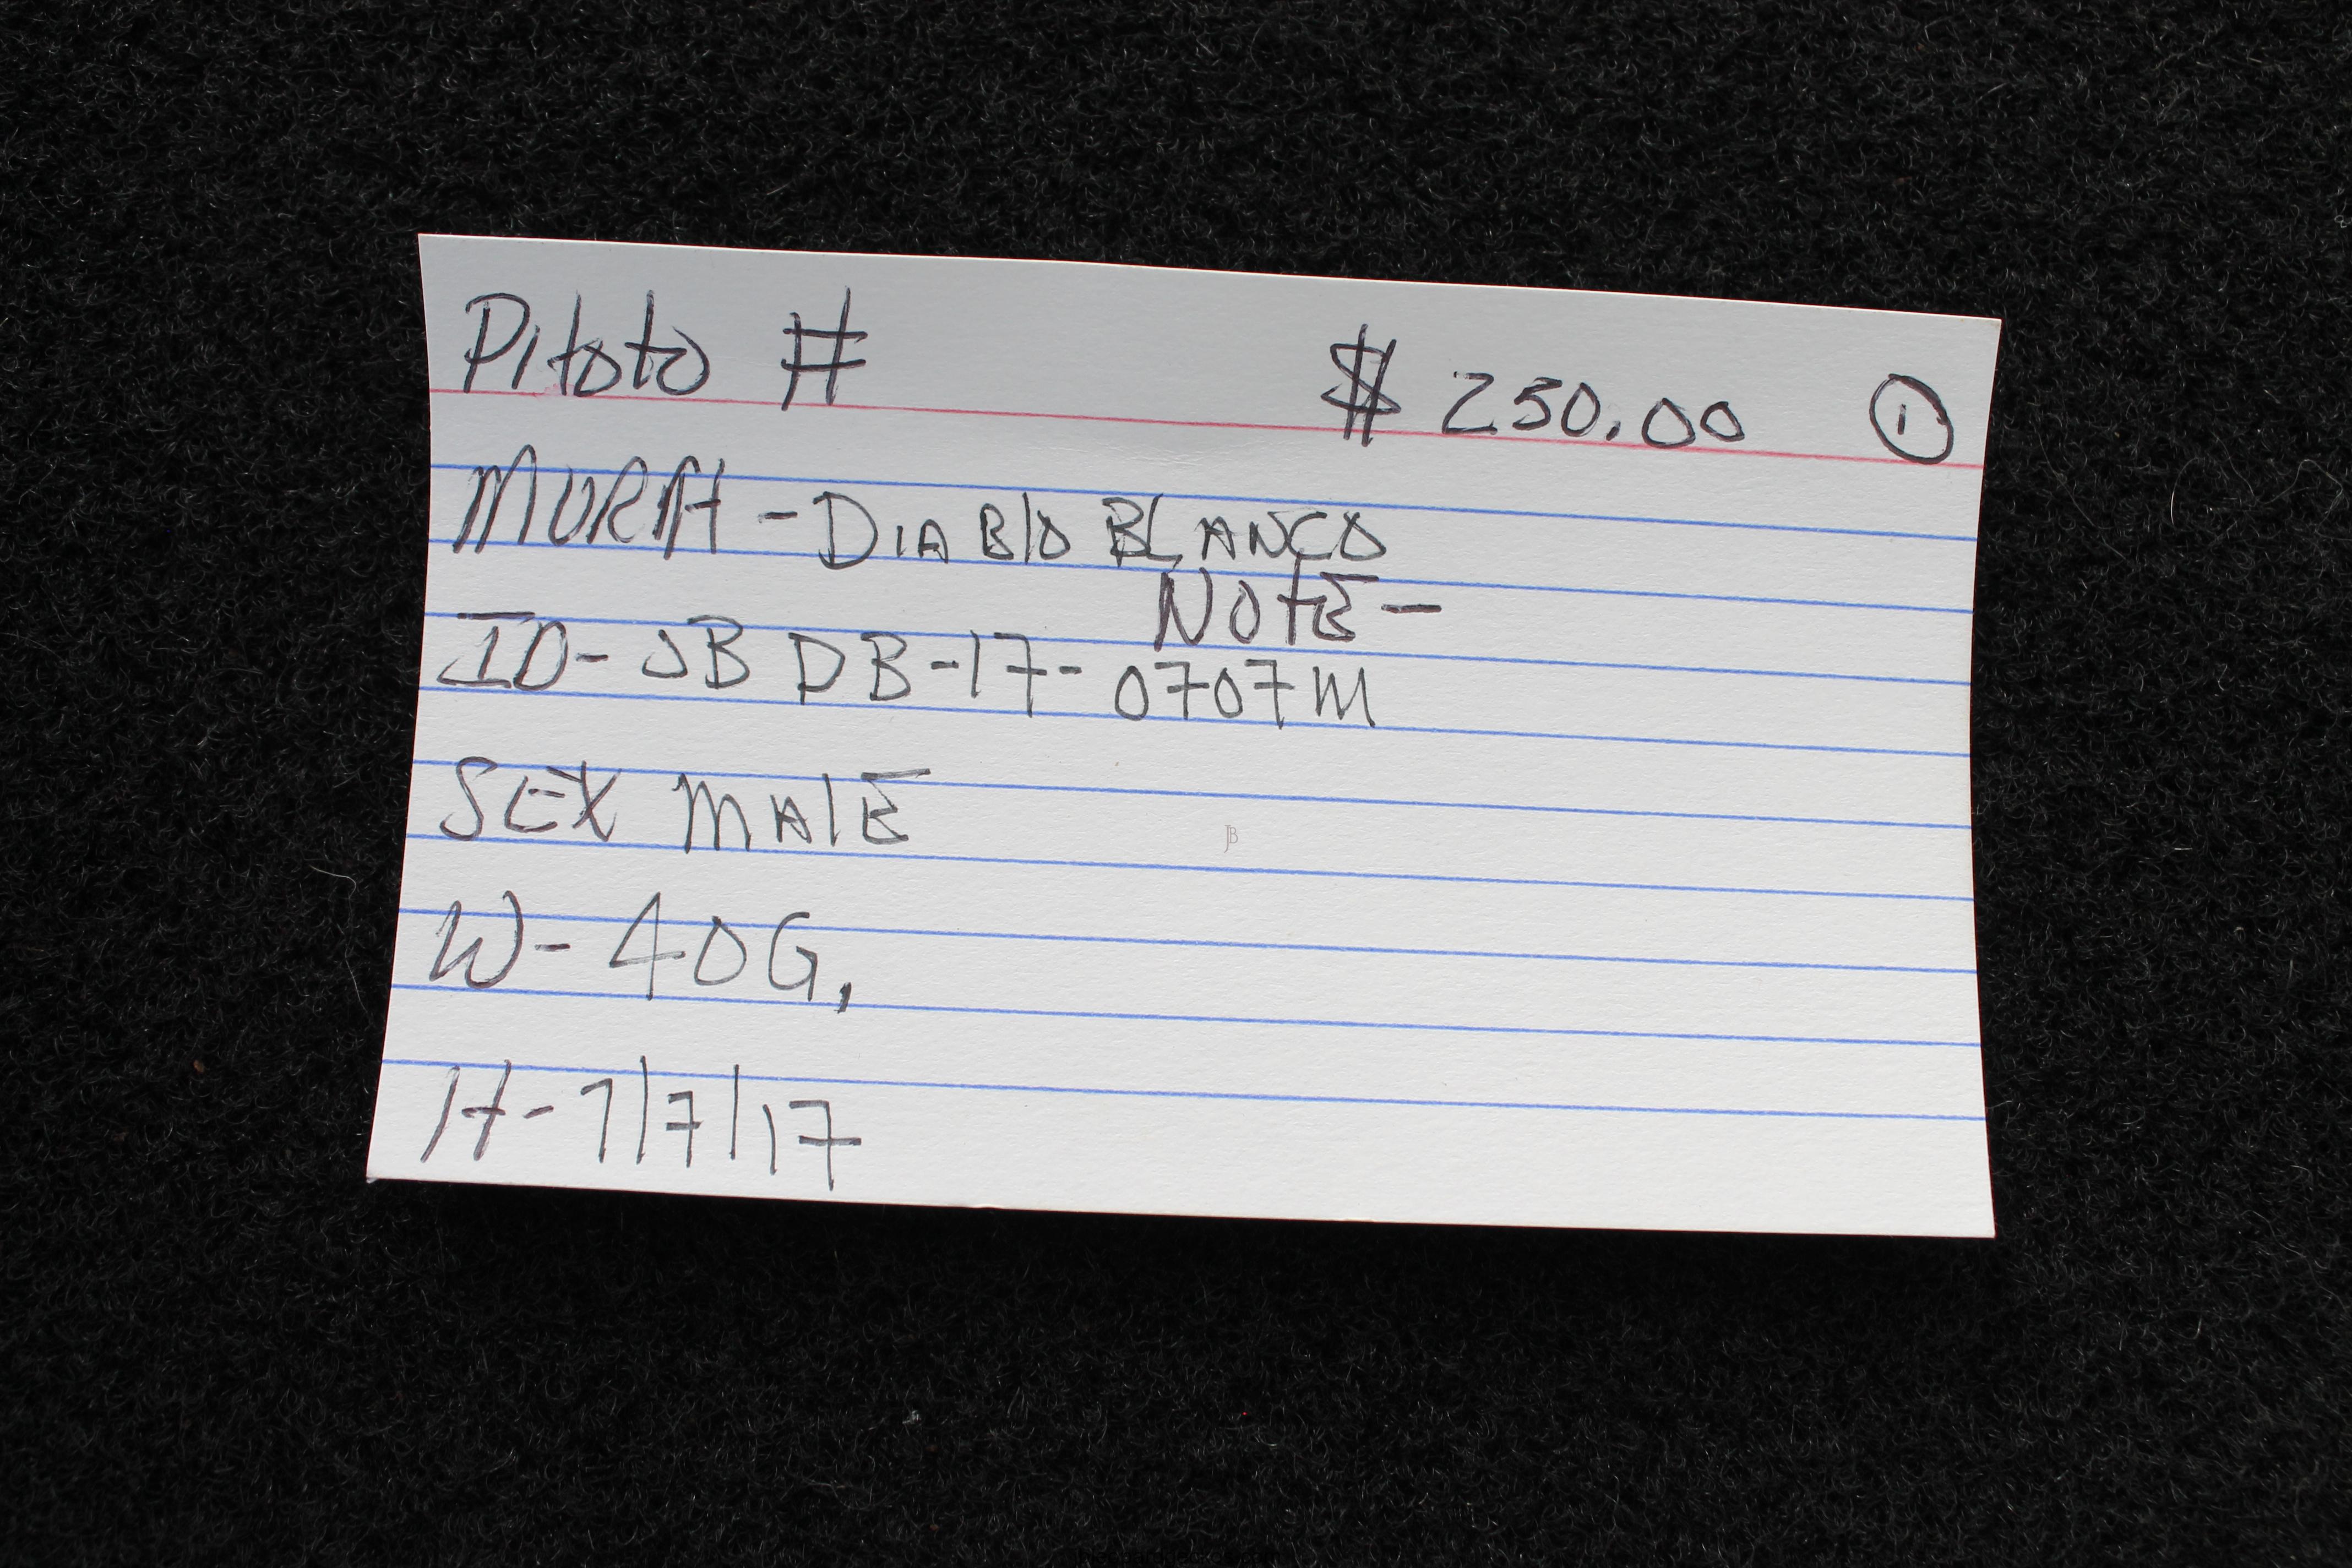 Pitoto # $ 250.00 ①
MORPH - DIABlO BLANCO
NOtE -
ID- JB DB-17-0707M
SEX MAlE
W- 40G.
H- 7/7/17
JB